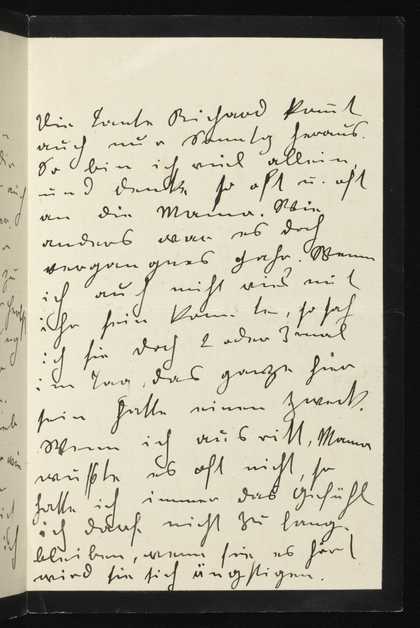 Die Tante Richard kommt
auch nur Sonntg heraus.
So bin ich viel allein,
und denke so oft u. oft
an die Mama. Wie
anders war es doch
vergangnes Jahr. Wenn
ich auch nicht viel mit
ihr sein konnte, so sah
ich sie doch 2 oder 3 mal
im Tag, das ganze hier
sein hatte einen Zweck.
Wenn ich ausritt, Mama
wußte es oft nicht, so
hatte ich immer das Gefühl
ich darf nicht zu lang
bleiben, wenn sie es hört
wird sie sich ängstigen.